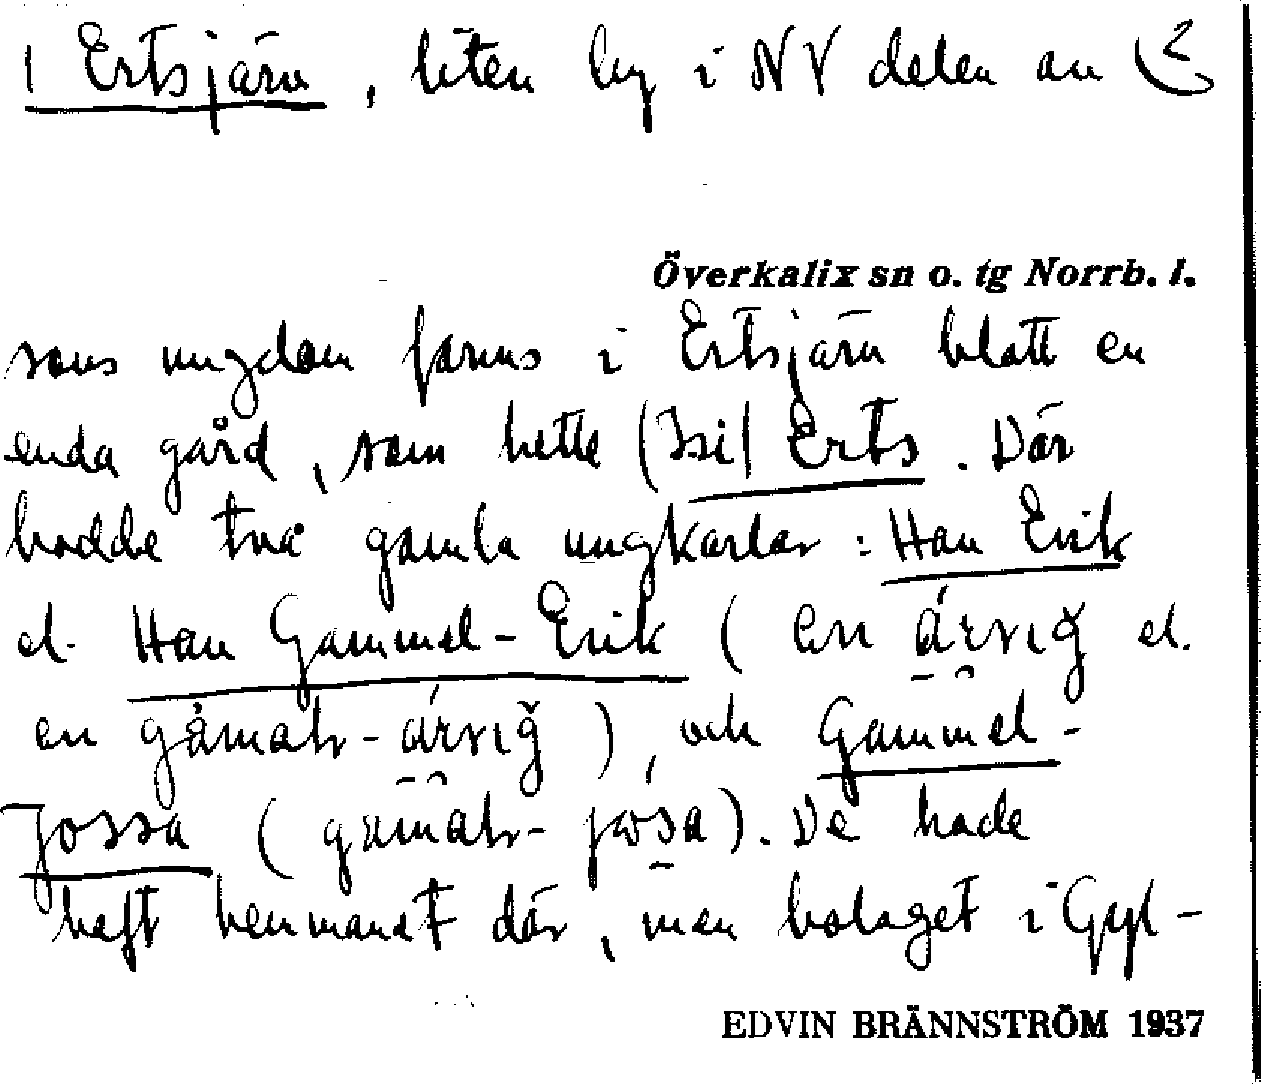 1 Ertsjärv, liten by i NV delen av
Överkalix sn o. tg Norrb. l.
sons ungdom fanns i Ertsjärv blott en
enda gård, som hette (Isi) Erts. Där
bodde två gamla ungkarlar: Han Erik
el. Han Gammel-Erik (en árvıǧ el.
en gåmalr-árvıǧ), och Gammel-
Jossa (gamalr-josa). De hade
haft hemmanet där, men bolaget i Gyl-
EDVIN BRÄNNSTRÖM 1937